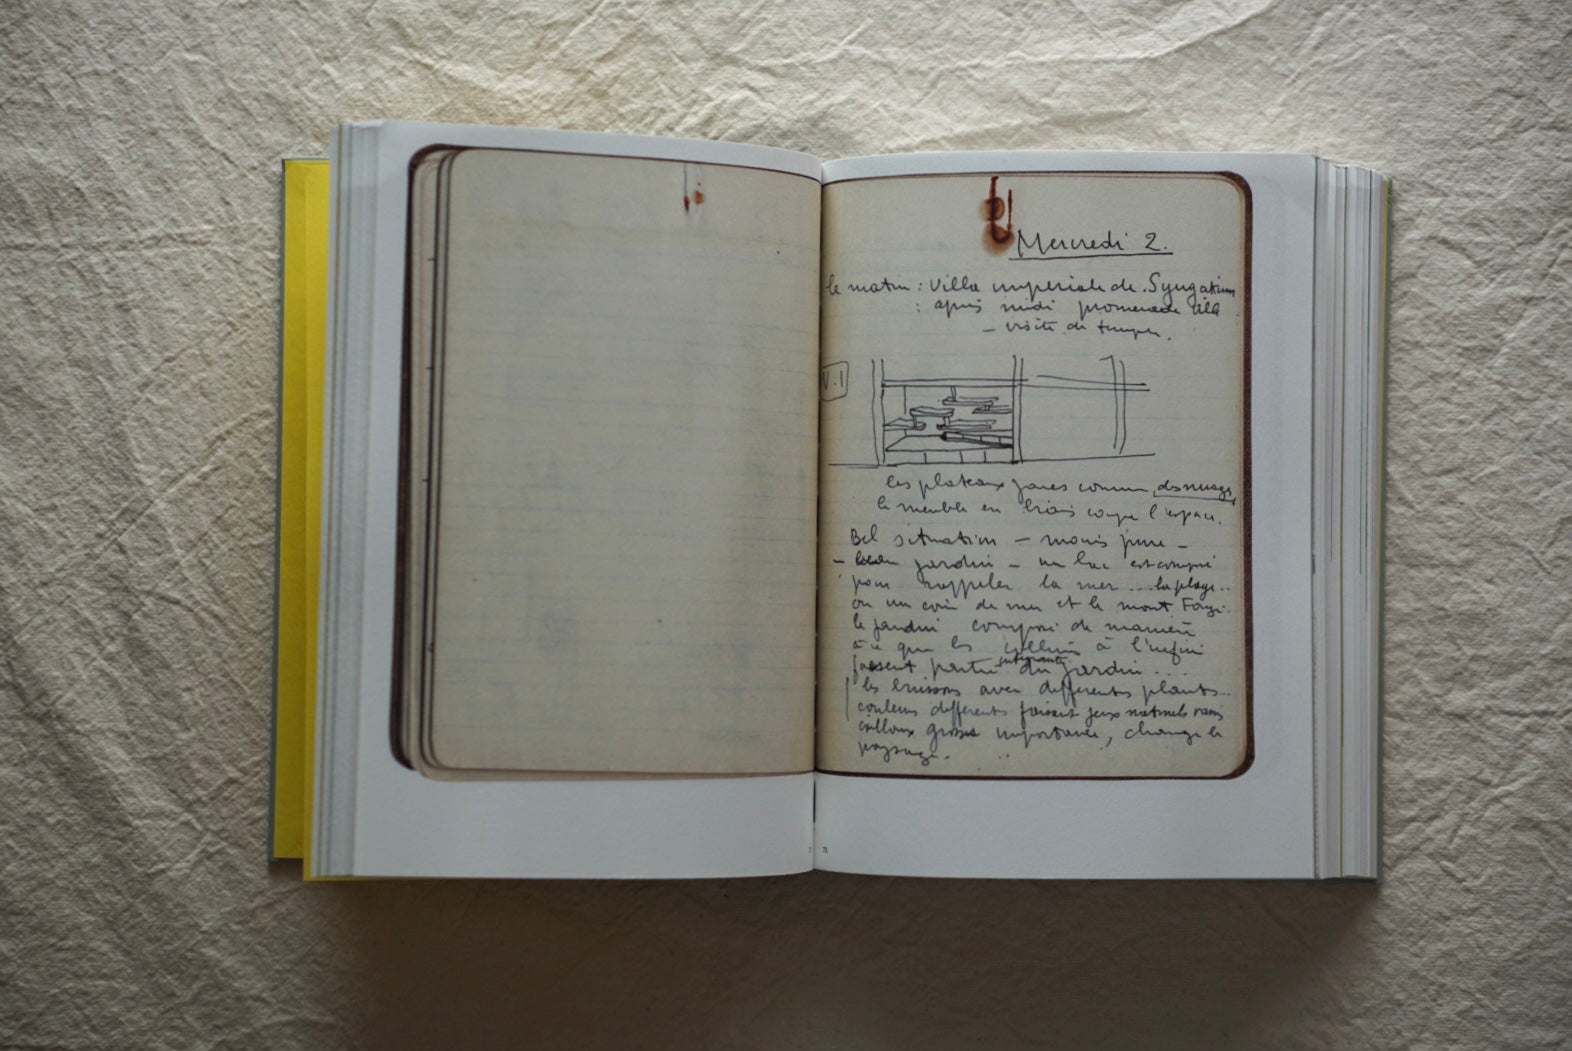 Mercredi 2.
le matin : Villa impériale de Syugakuin
: après midi promenade ville
– visite de temples.
V.1
les plateaux posés comme des nuages
le meuble en biais coupe l'espace.
Bel situation – mais pure –
– beau jardin – un lac est composé
pour rappeler la mer ... la plage..
ou un coin de mer et le mont Fouji.
le jardin composé de manière
à ce que les collines à l'infini
fassent partie intégrante du jardin...
les buissons avec différents plants..
couleurs différents faisant jeux naturels
cailloux grosse importance, change le
paysage.
71